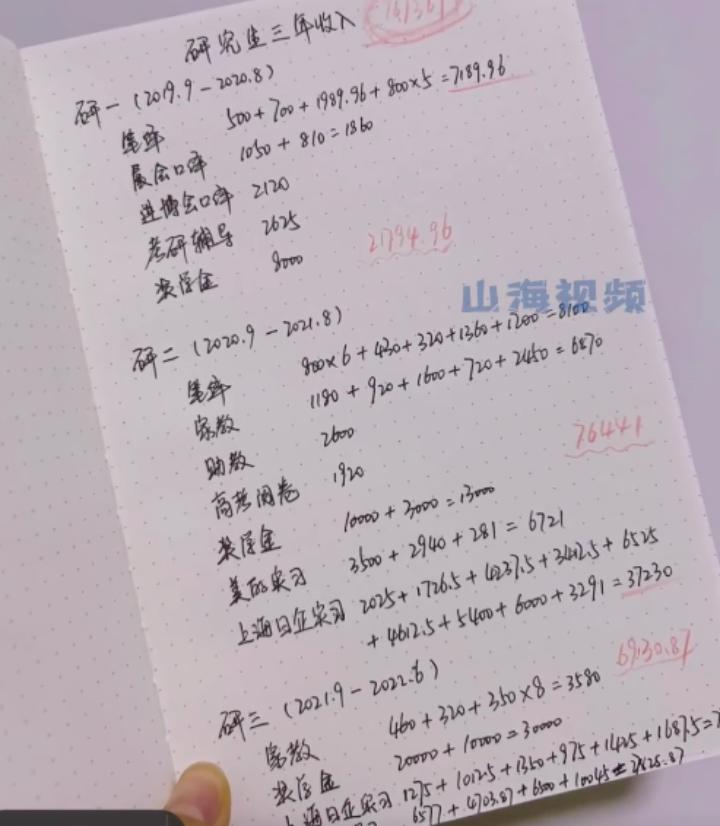 研究生三年收入
研一(2019.9-2020.8)
笔译 500+700+1989.96+800×5=7189.96
展会口译 1050+810=1860
进博会口译 2120
考研辅导 2625
奖学金 8000
21794.96
山海视频
研二(2020.9-2021.8)
笔译 800×6+430+320+1360+1200=8100
家教 1180+920+1600+720+2450=6870
助教 2600
高考阅卷 1920
76441
奖学金 10000+3000=13000
美的实习 3500+2940+281=6721
上海日企实习 2025+1726.5+4237.5+3412.5+6525
+4612.5+5400+6000+3291=37230
69130.87
研三(2021.9-2022.6)
家教 460+320+350×8=3580
奖学金 20000+10000=30000
上海日企实习 1275+1012.5+1350+975+1425+1687.5=7
6577+4703.87+6500+10045=